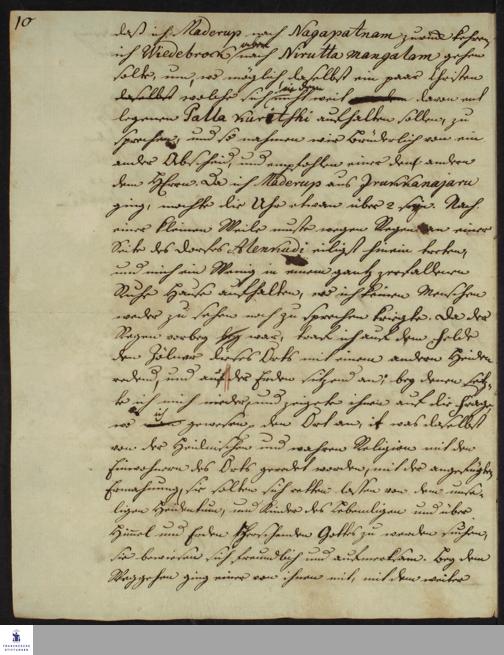 10
daß ich Maderup nach Nagapatnam zurück kehren,
ich Wiedebrock aber nach Nirutta mangalam gehen
solte, um, wo möglich daselbst ein paar Christen
daselbst welche sich nicht weit davon ent
legenen Palla kuritschi aufhalten sollen, zu
sprechen, und so nahmen wir brüderlich von ein
ander Abschied, und empfohlen einer dem andern
dem HErrn. Da ich Maderup aus Irukkanajaru
ging, mochte die Uhr etwan über 2 seyn. Nach
einer kleinen Weile muste wegen Regen an einer
Seite des Dorfes Alenkudi eiligst hinein treten,
und mich ein Wenig in einem gantz zerfallenen
Ruhe Hause aufhalten, wo ich keinen Menschen
weder zu sehen noch zu sprechen kriegte. Da der
Regen vorbey war, traf ich auf dem Felde
den Zölner dieses Orts mit einem andern Heiden
redend, und auf der Erden sitzend an; bey denen setz
te ich mich nieder, und zeigete ihnen auf die Frage,
wo ich gewesen, den Ort an, it was daselbst
von der Heidnischen und wahren Religion mit den
Einwohnern des Orts geredet worden, mit der angefügten
Ermahnung, sie solten sich retten lassen von dem unse-
ligen Heidentum, um Kinder des Lebendigen und über
Himmel und Erden herrschenden Gottes zu werden suchen,
sie bewiesen sich freundlich und aufmerksam. Bey dem
Weggehen ging einer von ihnen mit, mit dem weiter
FRANCKESCHE
STIFTUNGEN